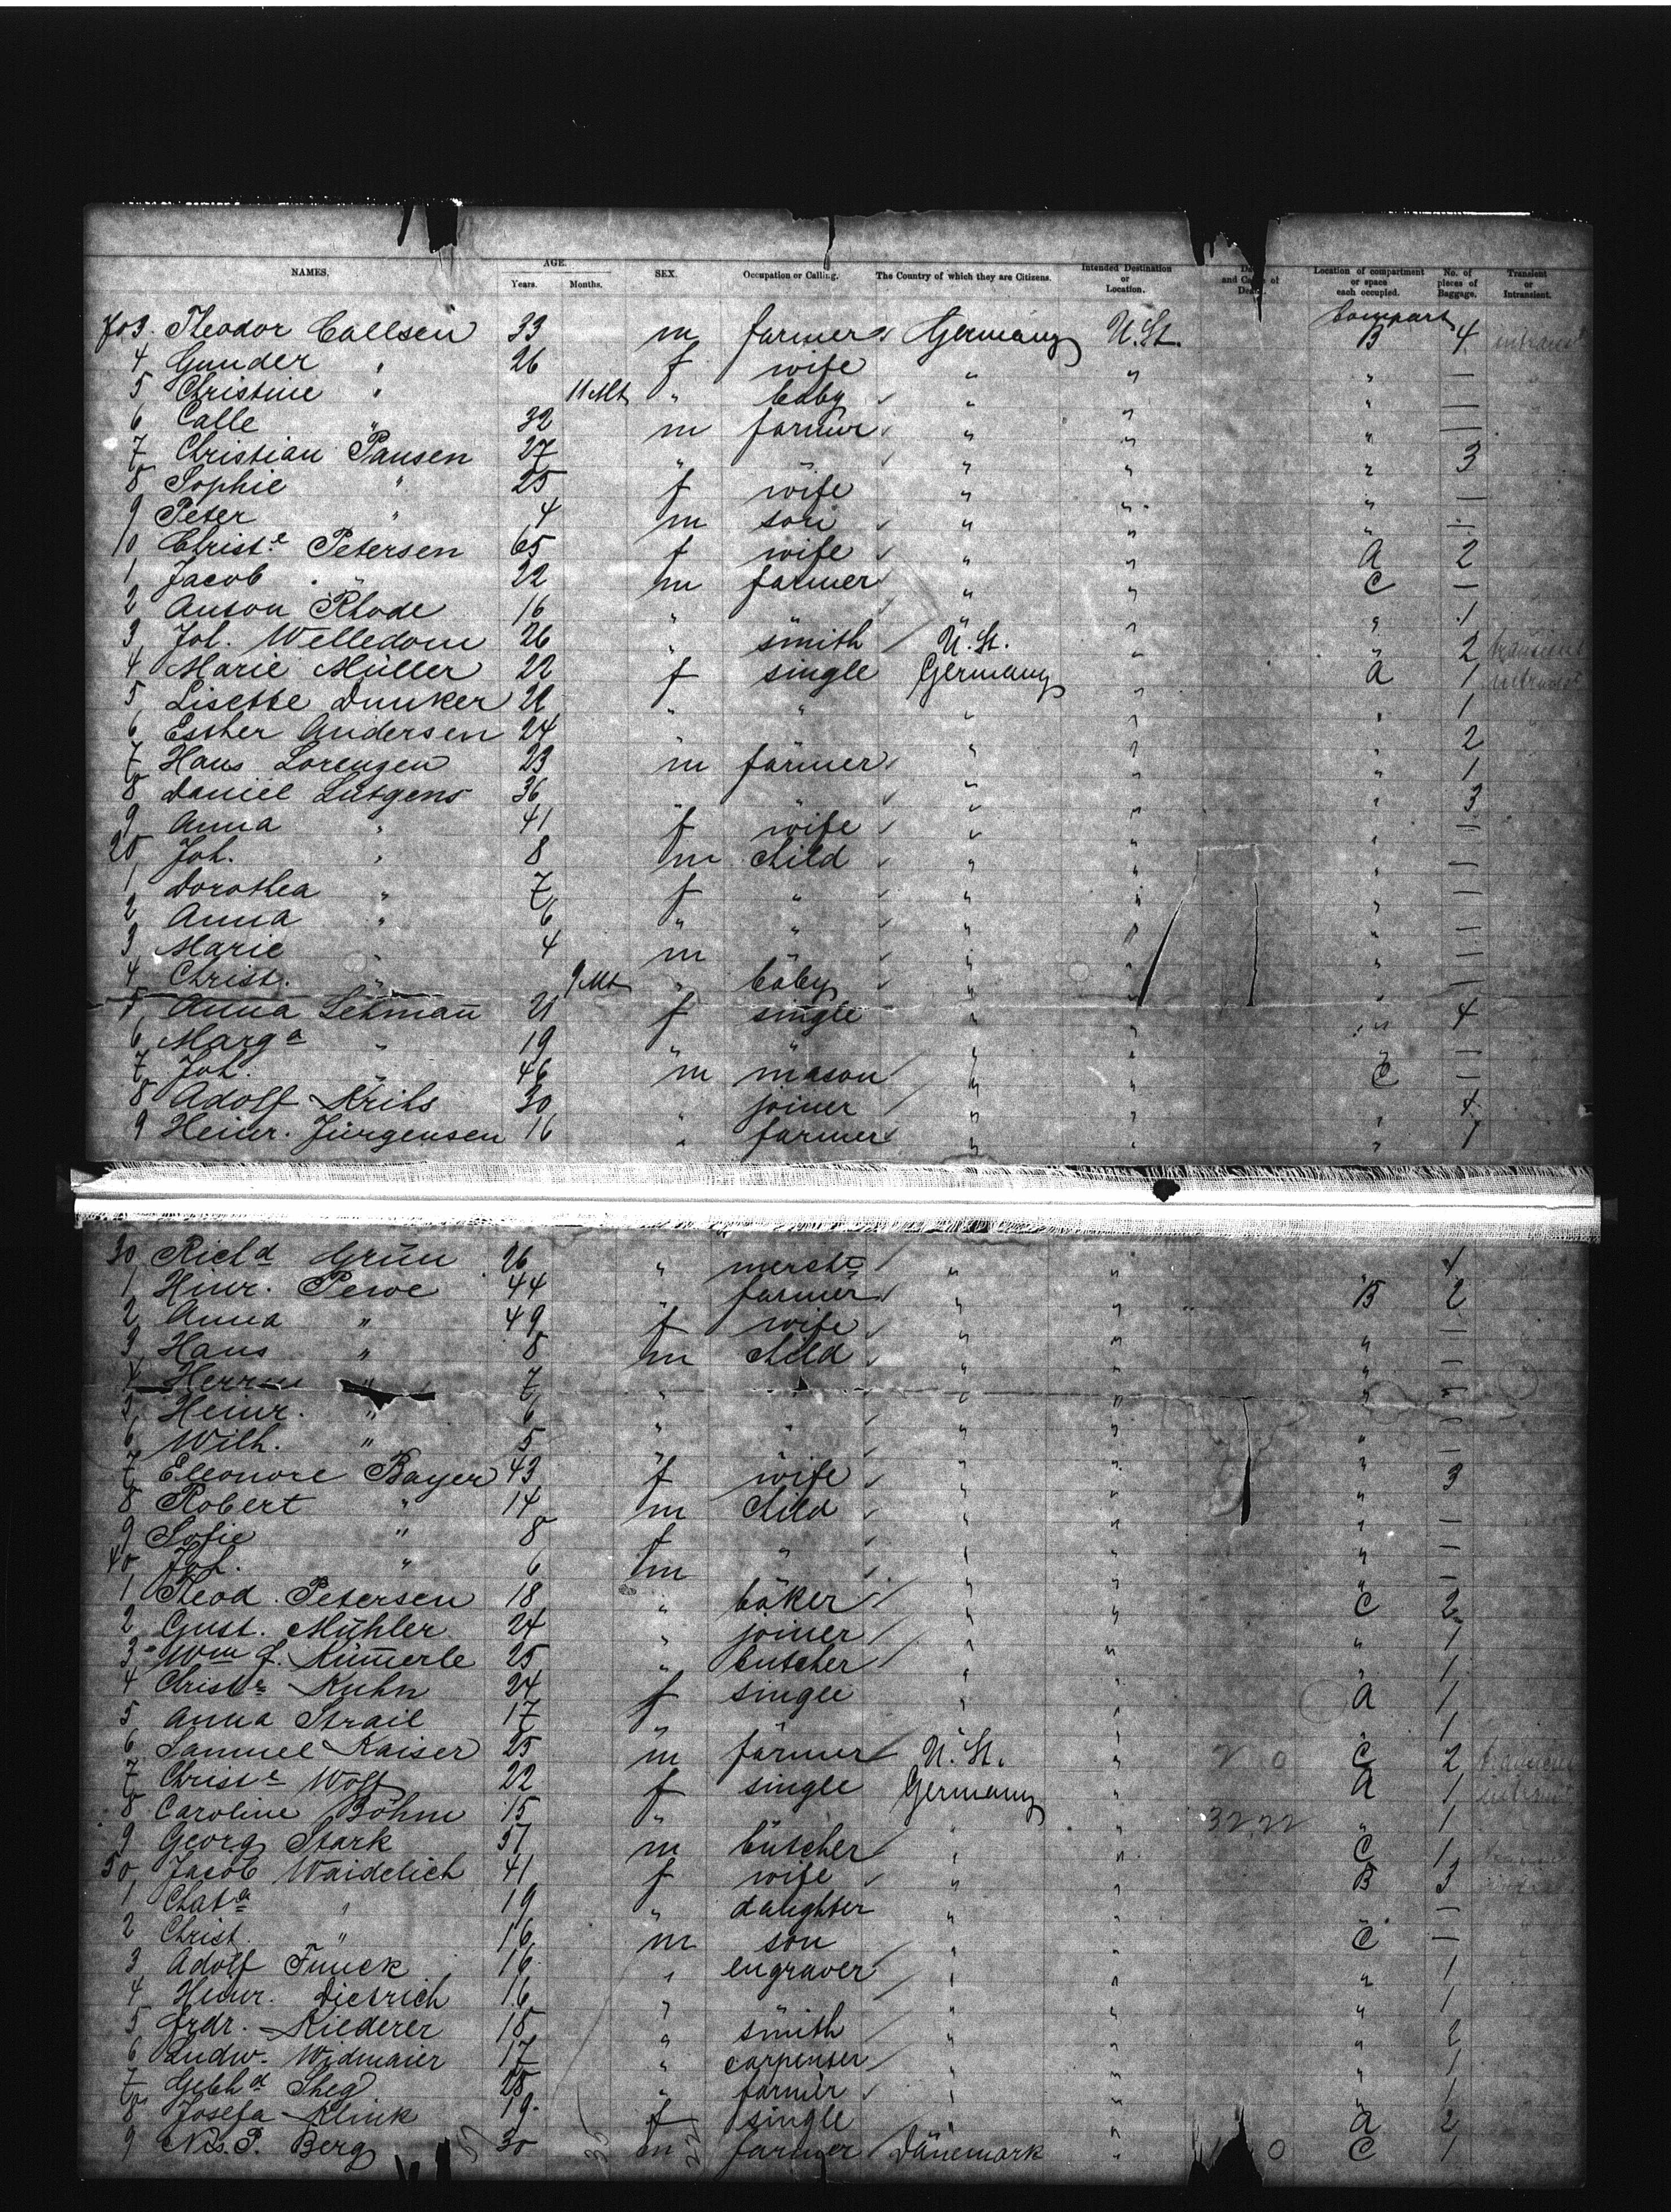 NAMES. AGE. Years. Months. SEX. Occupation or Calling. The Country of which they are Citizens. Intended Destination or Location. Location of compartment or space each occupied. No. of pieces of Baggage. Transient or Intransient.
703. Theodor Callsen 33 m farmer Germany U.St. Compart B 4
4 Gunder " 26 f wife " " " —
5 Christine " 11 Mt " baby " " " —
6 Calle " 32 m farmer " " " —
7 Christian Pausen 27 " " " " " 3
8 Sophie " 25 f wife " " " —
9 Peter " 4 m son " " " —
10 Christ.e Petersen 65 f wife " " A 2
1 Jacob " 22 m farmer " " C —
2 Anton Rhode 16 " " " " 1
3 Joh. Welledom 26 " smith U.St. " " 2 transient
4 Marie Müller 22 f single Germany A 1
5 Lisette Dunker 21 " " " " " 1
6 Esther Andersen 24 " " " " 2
7 Hans Lorenzen 23 m farmer " " " 1
8 Daniel Lütgens 36 " " " 3
9 Anna " 41 f wife " " " —
20 Joh. " 8 m child " " " —
1 Dorothea " 7 f " " " " —
2 Anna " 6 " " " " " —
3 Marie " 4 m " " " " —
4 Christ. " 9 Mt " baby " " " —
5 Anna Lehmañ 21 f single " " " 4
6 Marg.a " 19 " " " " —
7 Joh. " 46 m mason " " C —
8 Adolf Krihs 30 " joiner " " " 4
9 Heinr. Jürgensen 16 " farmer " " " 1
30 Rich.d Grün 26 " mercht " " 1
1 Hinr. Pewe 44 " farmer " " B 2
2 Anna " 49 f wife " " " —
3 Hans " 8 m child " " " —
4 " 7 " " " " —
5 Heinr. " 6 " " " " " —
6 Wilh. " 5 " " " " —
7 Eleonore Bayer 43 f wife " " " 3
8 Robert " 14 m child " " " —
9 Sofie " 8 f " " " " —
40 Joh. " 6 m " " " " —
1 Theod. Petersen 18 " baker " " C 2
2 Gust. Mühler 24 " joiner " " " 1
3 Wm f. Kümerle 25 " butcher " " " 1
4 Christ.e Kuhn 24 f single " " A 1
5 Anna Strail 17 " " " " " 1
6 Samuel Kaiser 25 m farmer U.St. " C 2
7 Christ.e Wolf 22 f single Germany " A 1
8 Caroline Böhm 15 " " " " 1
9 Georg Stark 57 m butcher " " C 1
50 Jacob Waidelich 41 f wife " " B 3
1 " 19 " daughter " " —
2 Christ. " 16 m son " " C —
3 Adolf Funck 16 " engraver " " " 1
4 Heinr. Dietrich 16 " " " " 1
5 Frdr. Riederer 18 " smith " " " 2
6 Ludw. Widmaier 17 " carpenter " " " 1
7 Gebh.d 28 " farmer " " " 1
8 Josefa Klink 19 f single " A 2
9 Berg 30 m farmer Dänemark " C 1